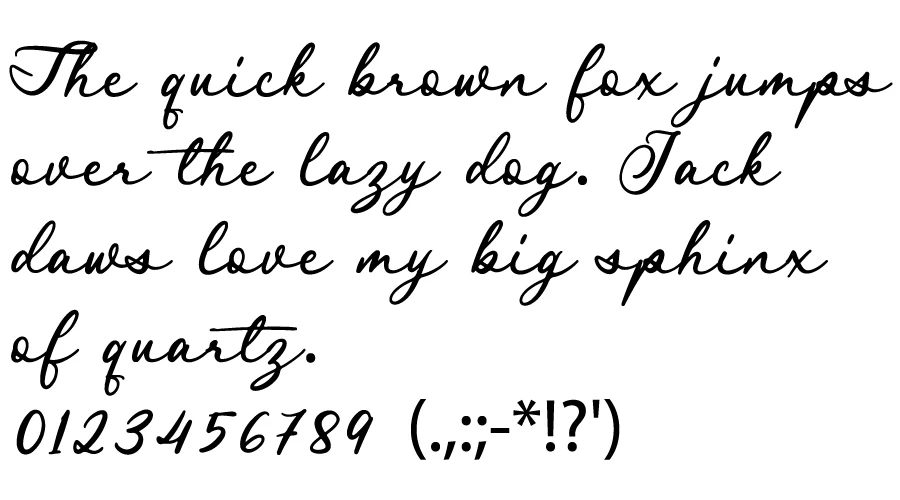 The quick brown fox jumps
over the lazy dog. Jack
daws love my big sphinx
of quartz.
0123456789 (.,:;-*!?')